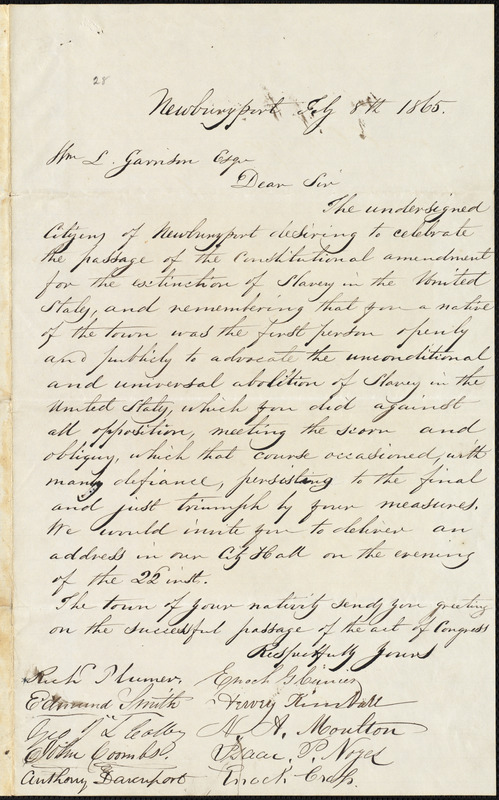 28
Newburyport Feby 8th 1865.
Wm L. Garrison Esqr
Dear Sir
The undersigned
Citizens of Newburyport desiring to celebrate
the passage of the Constitutional amendment
for the extinction of Slavery in the United
States, and remembering that you a native
of the town was the first person openly
and publicly to advocate the unconditional
and universal abolition of Slavery in the
United States, which you did against
all opposition, meeting the scorn and
obloquy, which that course occasioned, with
manly defiance, persisting to the final
and just triumph by your measures.
We would invite you to deliver an
address in our City Hall on the evening
of the 22 inst.
The town of your nativity sends you greeting
on the successful passage of the act of Congress
Respectfully Yours
Rich Plumer, Enoch G.
Edmund Smith Hervey Kimball
Geo J L Colby N. A. Moulton
John Coombs. Isaac. P. Noyes
Anthony Davenport Enoch Cross.